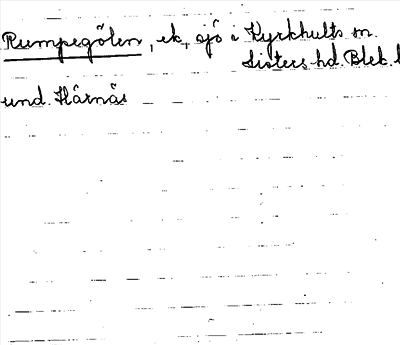 Rumpegölen, ek, sjö i Kyrkhults sn.
Listers hd. Blek. l
und. Hårnäs